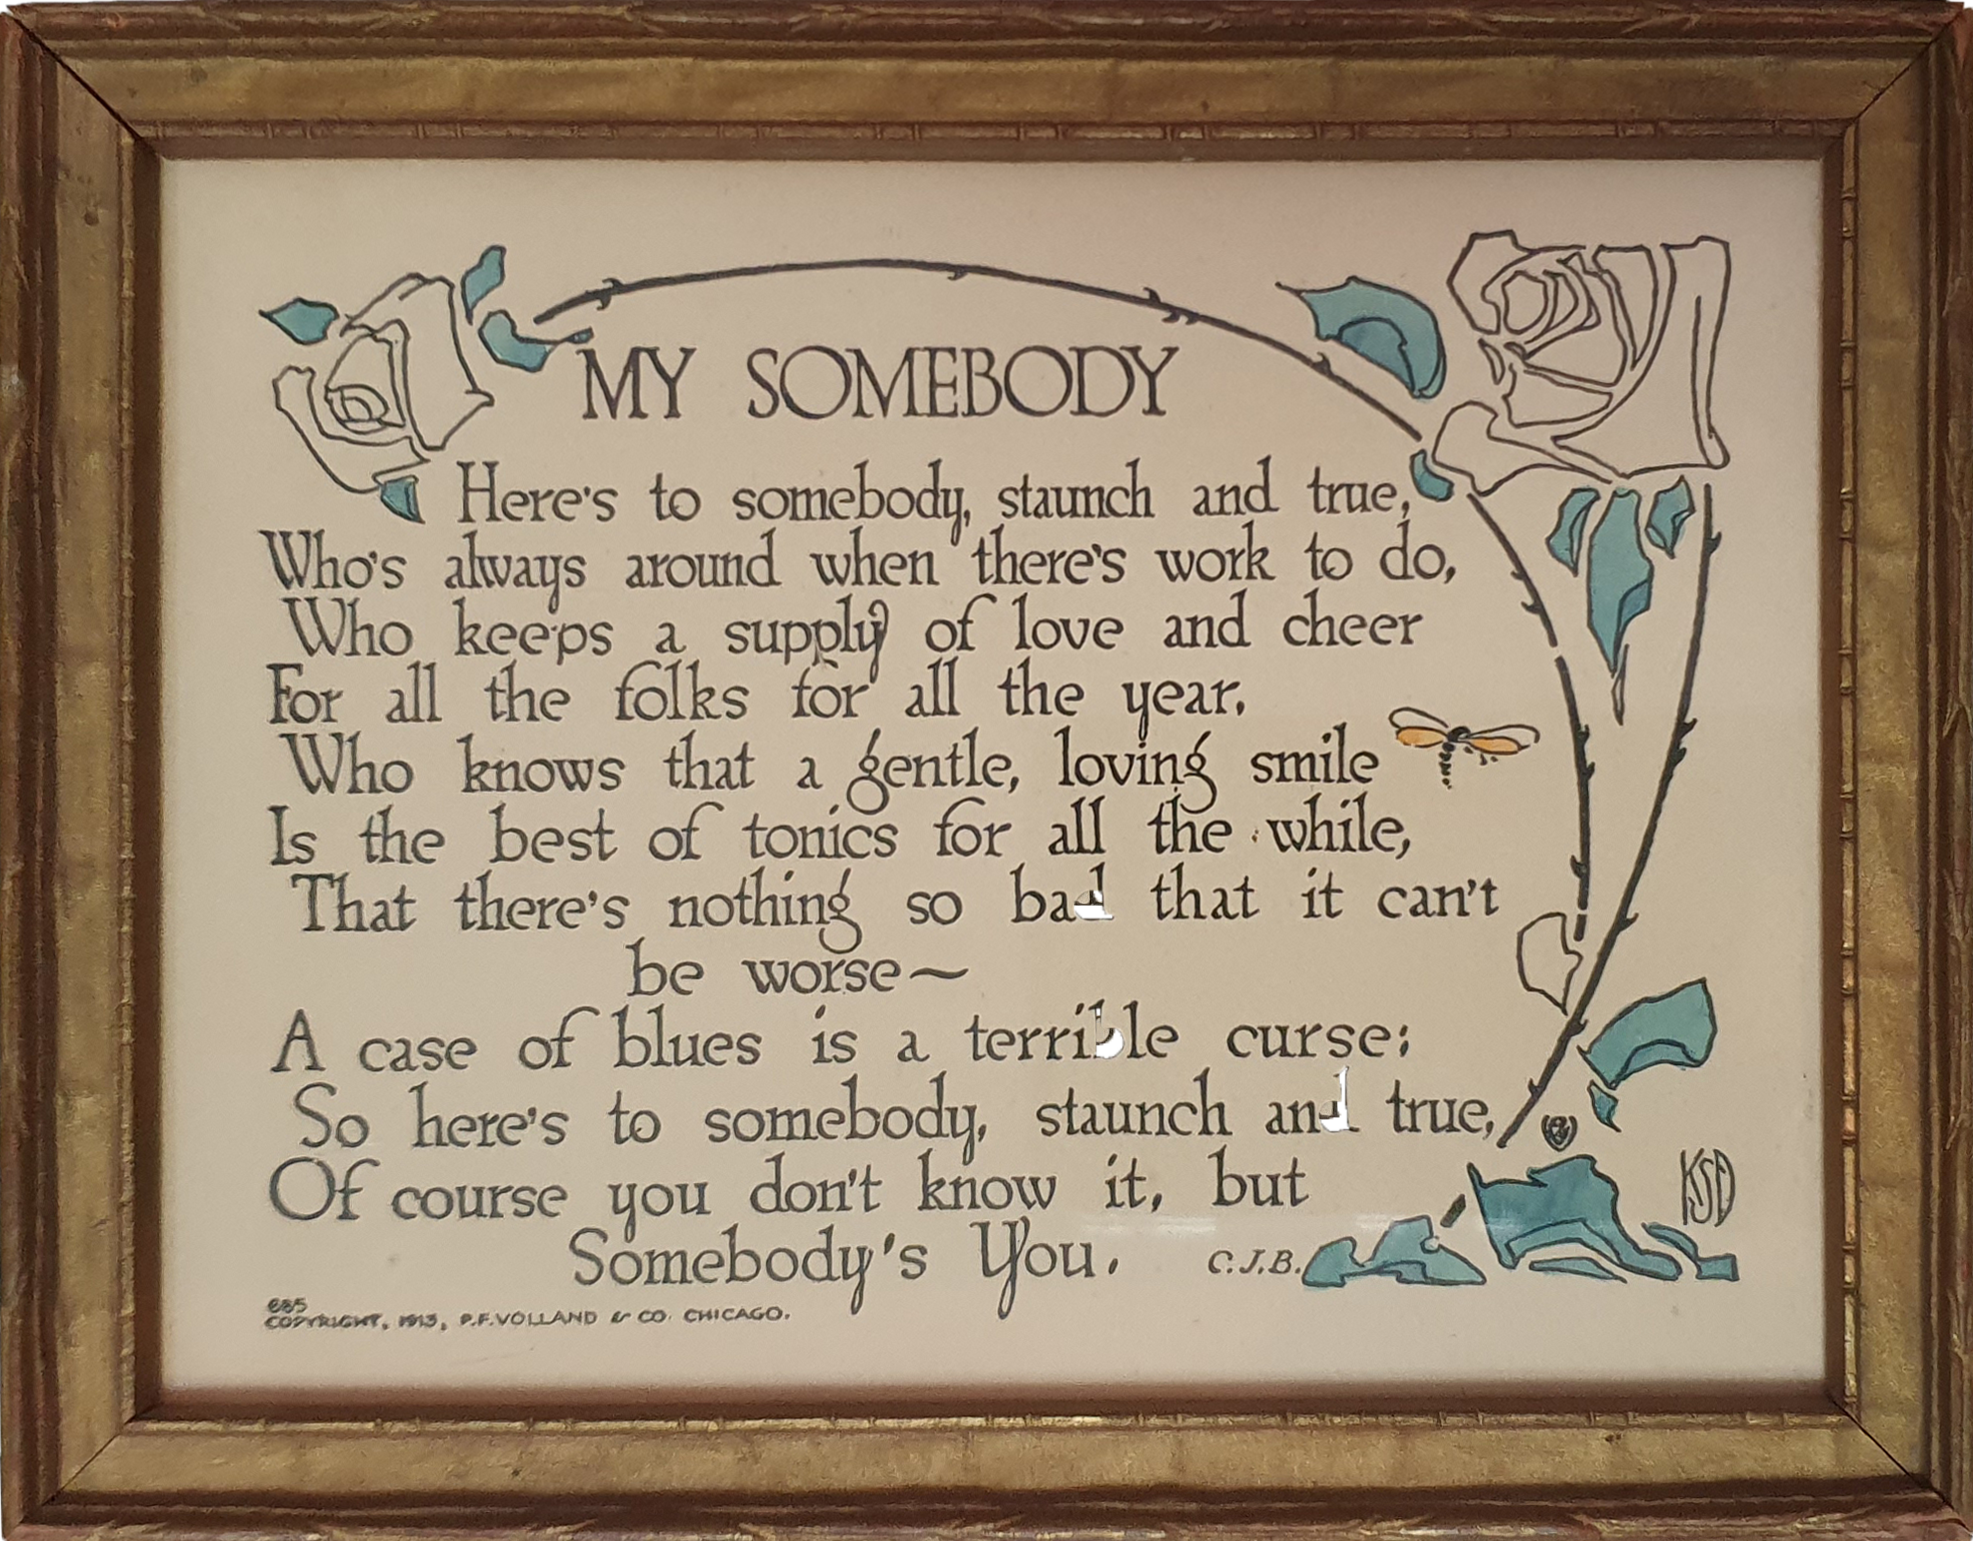 MY SOMEBODY
Here's to somebody, staunch and true,
Who's always around when there's work to do,
Who keeps a supply of love and cheer
For all the folks for all the year.
Who knows that a gentle, loving smile
Is the best of tonics for all the while,
That there's nothing so bad that it can't
be worse~
A case of blues is a terrible curse:
So here's to somebody, staunch and true,
Of course you don't know it, but
Somebody's You.
C.J.B.
KSD
685
COPYRIGHT, 1913, P.F.VOLLAND & CO. CHICAGO.